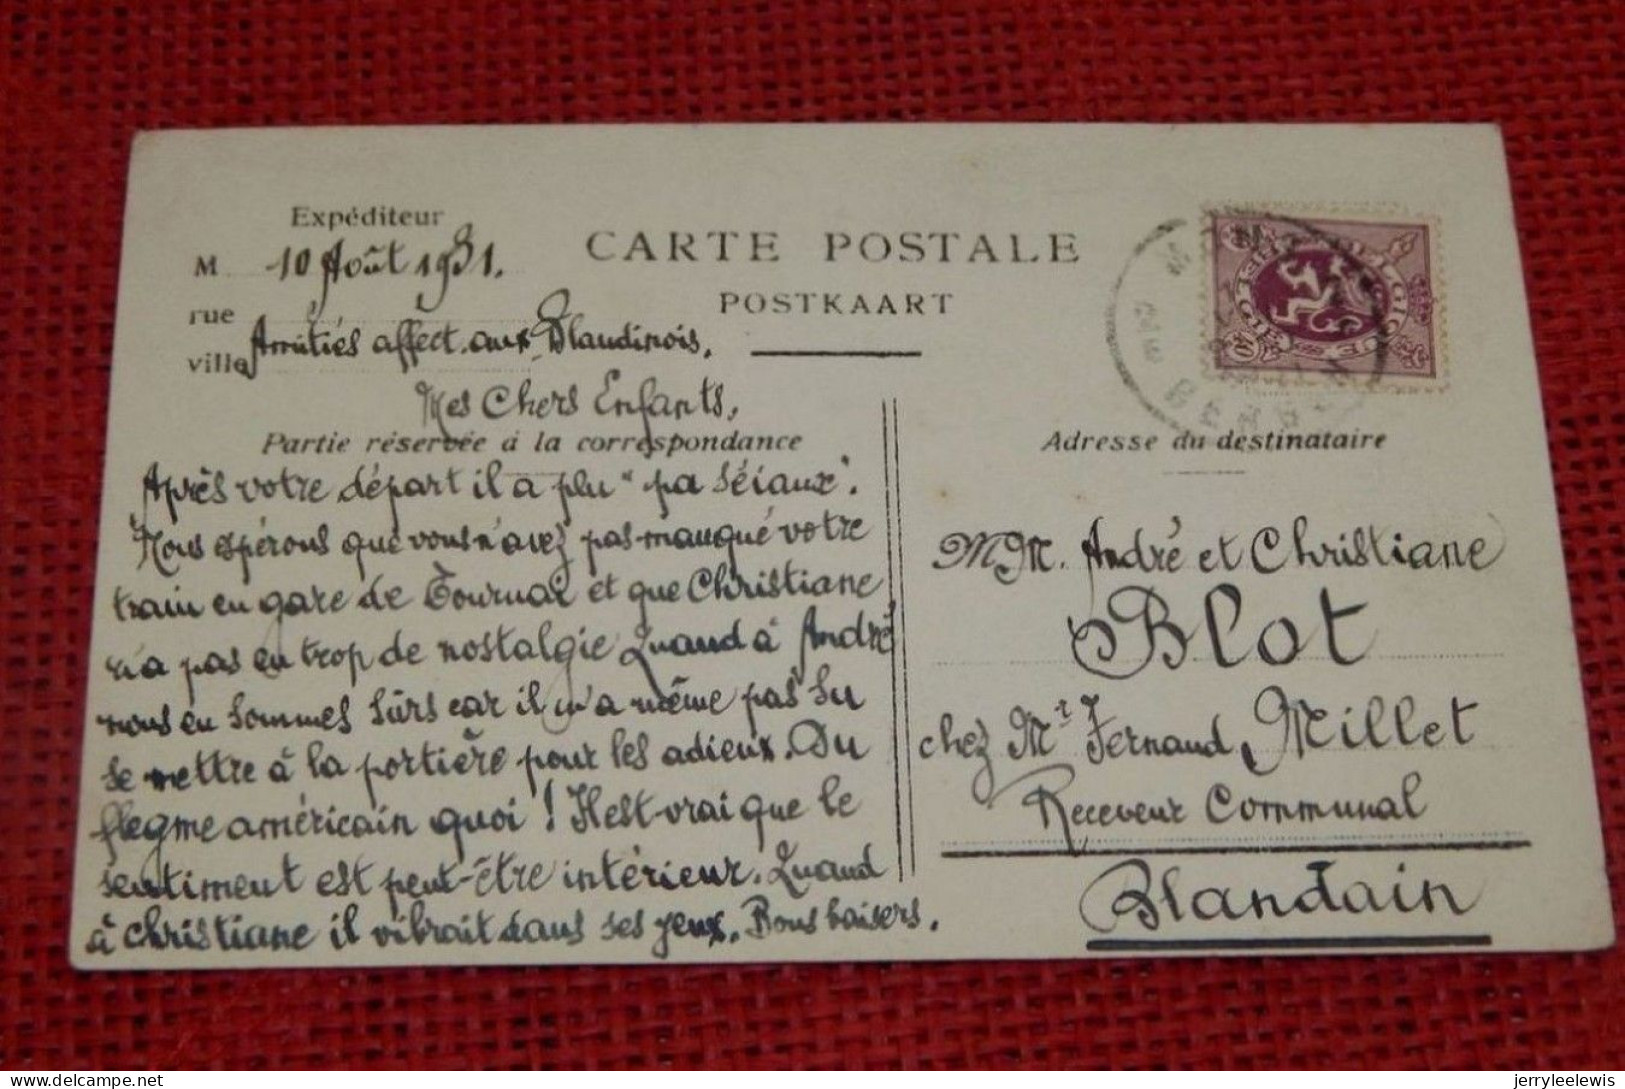 Expéditeur
M 10 Août 1931.
rue
ville Amitiés affect. aux Blandinois.
CARTE POSTALE
POSTKAART
Mes Chers Enfants,
Partie réservée à la correspondance
Après votre départ il a plu "pa séiaux".
Nous espérons que vous n'avez pas manqué votre
train en gare de Tournai et que Christiane
n'a pas eu trop de nostalgie Quand à André
nous en sommes sûrs car il n'a même pas su
se mettre à la portière pour les adieux. Du
flegme américain quoi ! Il est vrai que le
sentiment est peut-être intérieur. Quand
à Christiane il vibrait dans ses yeux. Bons baisers.
BELGIQUE
BELGIE
40
Adresse du destinataire
MM. André et Christiane
Blot
chez Mr Fernand Millet
Receveur Communal
Blandain
jerryleelewis